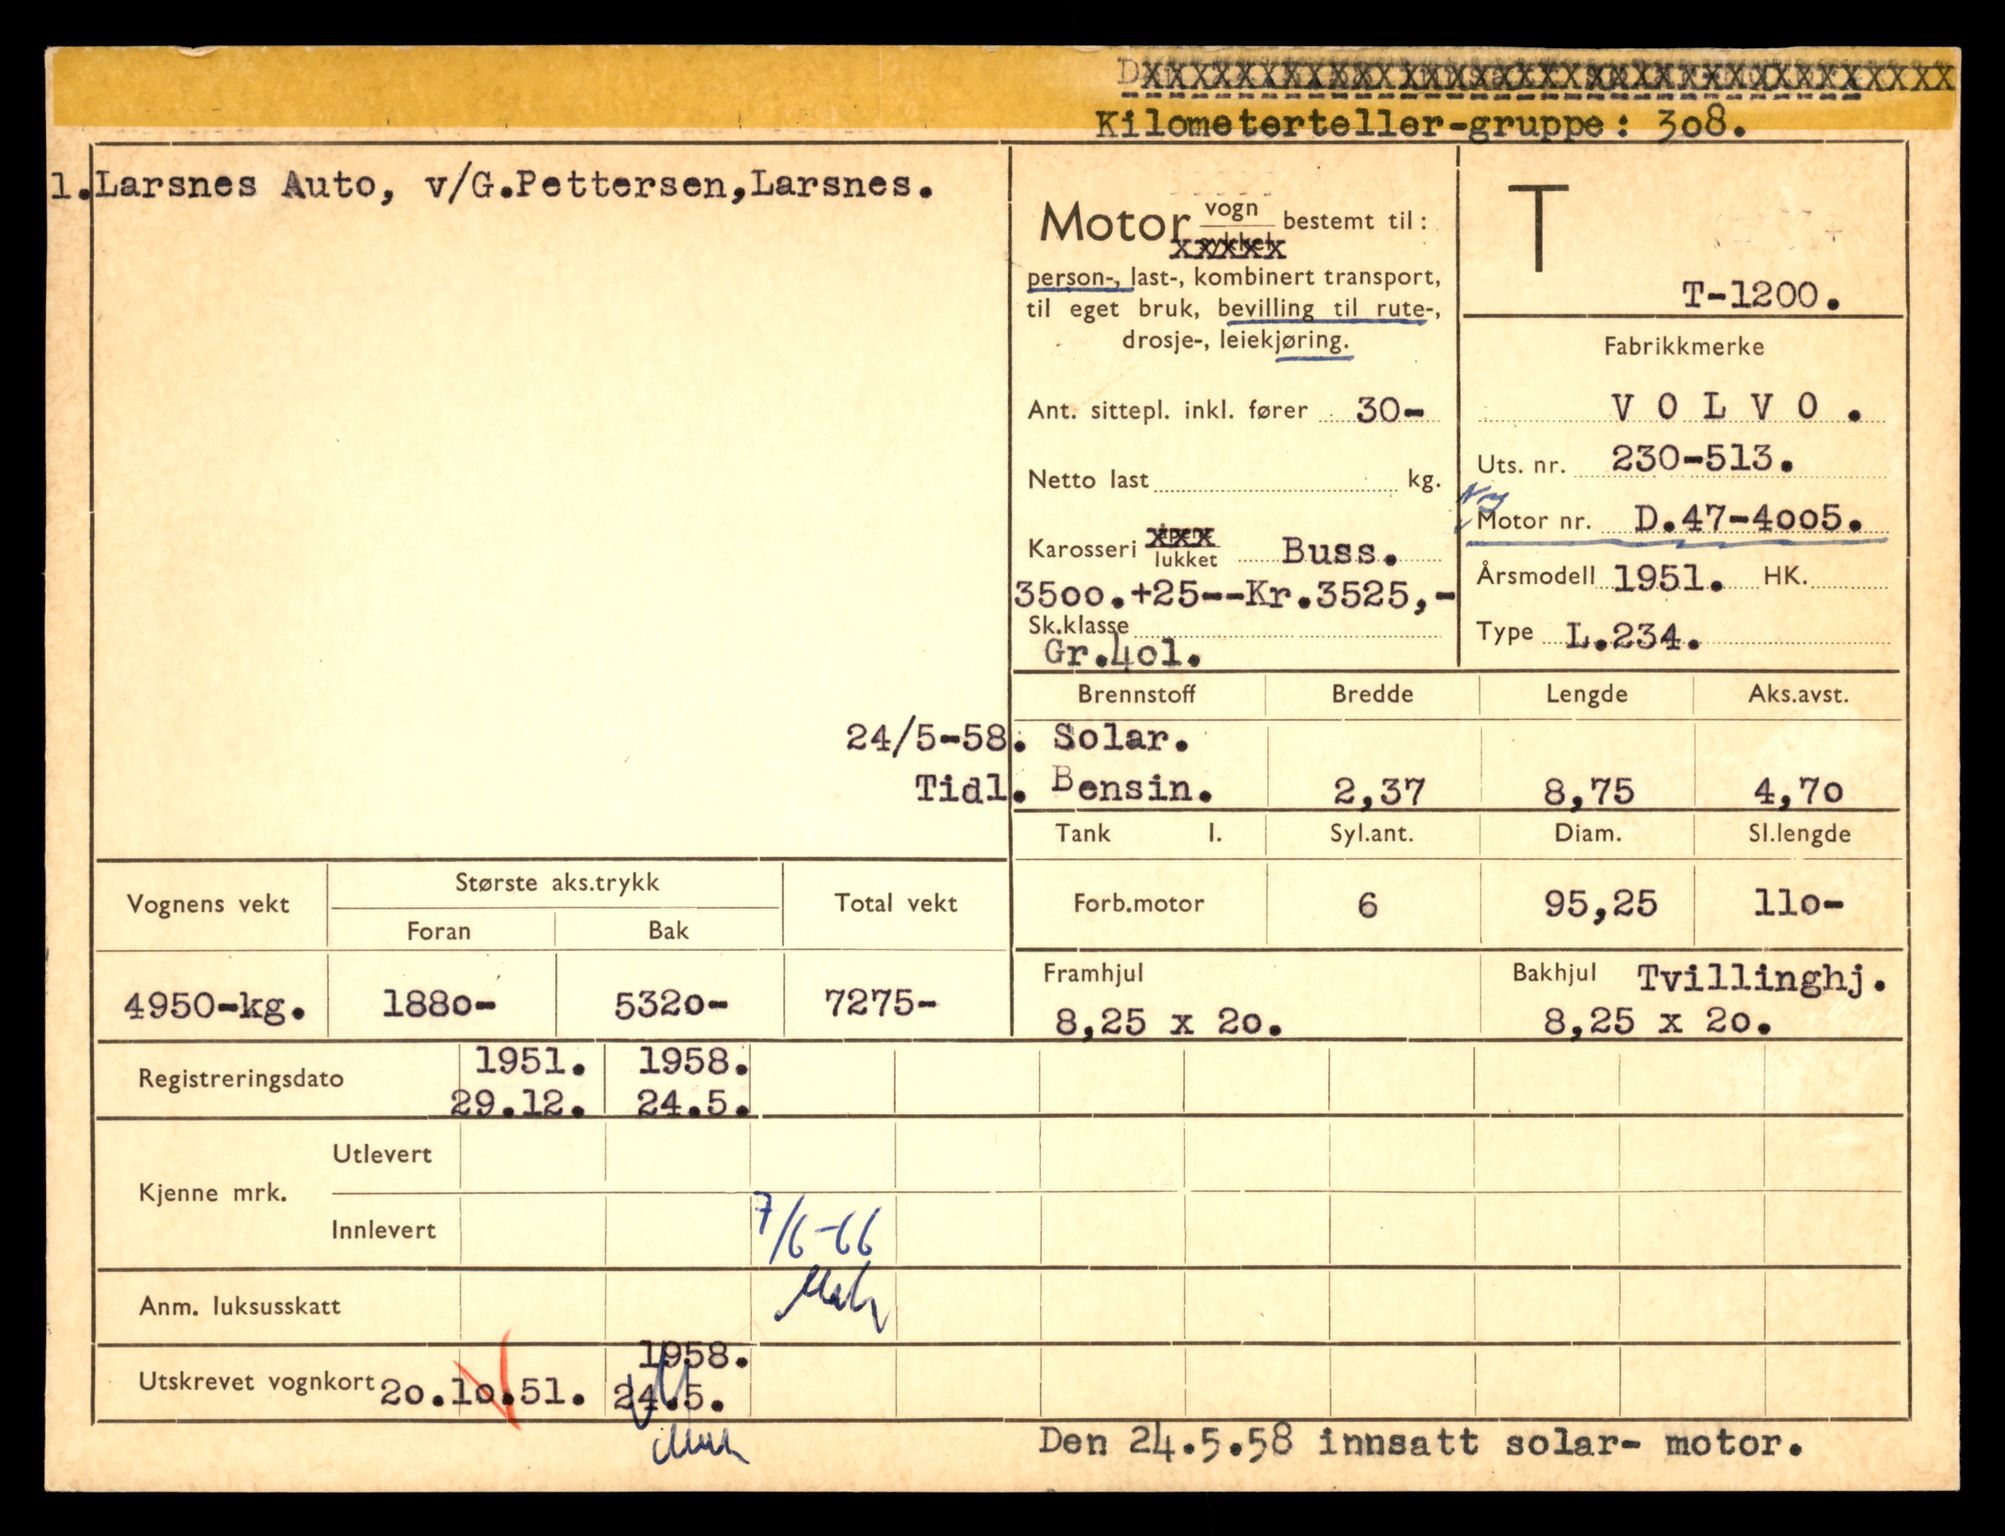 Kilometerteller-gruppe: 308.
1. Larsnes Auto, v/G.Pettersen,Larsnes.
Motor vogn bestemt til:
person-, last-, kombinert transport,
til eget bruk, bevilling til rute-,
drosje-, leiekjøring.
Ant. sittepl. inkl. fører 30-
Netto last kg.
Karosseri lukket Buss.
3500.+25--Kr.3525,-
Sk.klasse
Gr.401.
T
T-1200.
Fabrikkmerke
VOLVO.
Uts. nr. 230-513.
Ny
Motor nr. D.47-4005.
Årsmodell 1951. HK.
Type L.234.
Brennstoff Bredde Lengde Aks.avst.
24/5-58. Solar.
Tidl. Bensin. 2,37 8,75 4,70
Tank l. Syl.ant. Diam. Sl.lengde
Forb.motor 6 95,25 110-
Framhjul Bakhjul Tvillinghj.
8,25 x 20. 8,25 x 20.
Vognens vekt Største aks.trykk Total vekt
Foran Bak
4950-kg. 1880- 5320- 7275-
Registreringsdato 1951. 1958.
29.12. 24.5.
Kjenne mrk. Utlevert
Innlevert 7/6-66
Anm. luksusskatt
1958.
Utskrevet vognkort 20.10.51. 24.5.
Den 24.5.58 innsatt solar- motor.